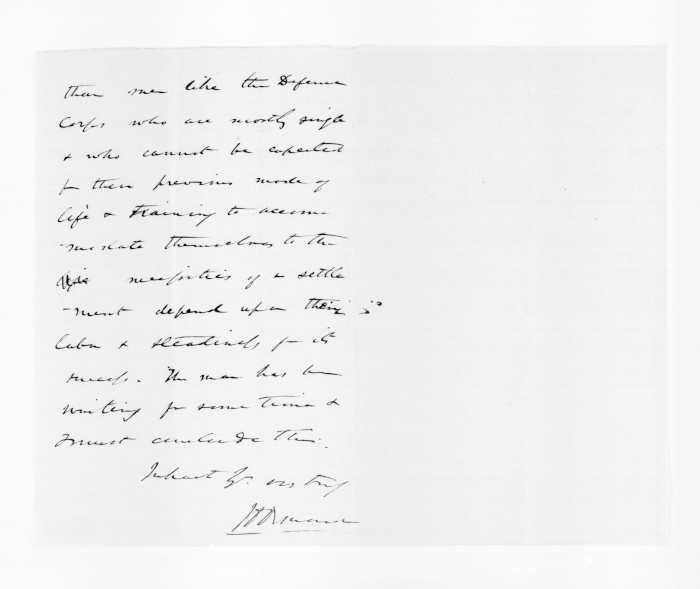 than men like the Defence
Corps who are mostly single
& who cannot be expected
fm their previous mode of
life & training to accom-
-modate themselves to the
necessities of a settle
-ment depend upon their
labor & steadiness for its
success. The man has been
waiting for some time &
I must conclude this.
In haste Yrs